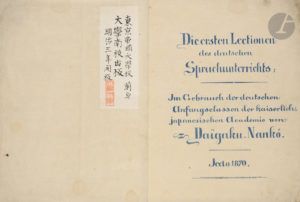 東京帝國大學校前身
大學南校出版
明治三年開板
Die ersten Lectionen
des deutschen
Sprachunterrichts,
Im Gebrauch der deutschen
Anfangsclassen der kaiserlich
japanesischen Academie von
Daïgaku Nankô.
Jedo 1870.